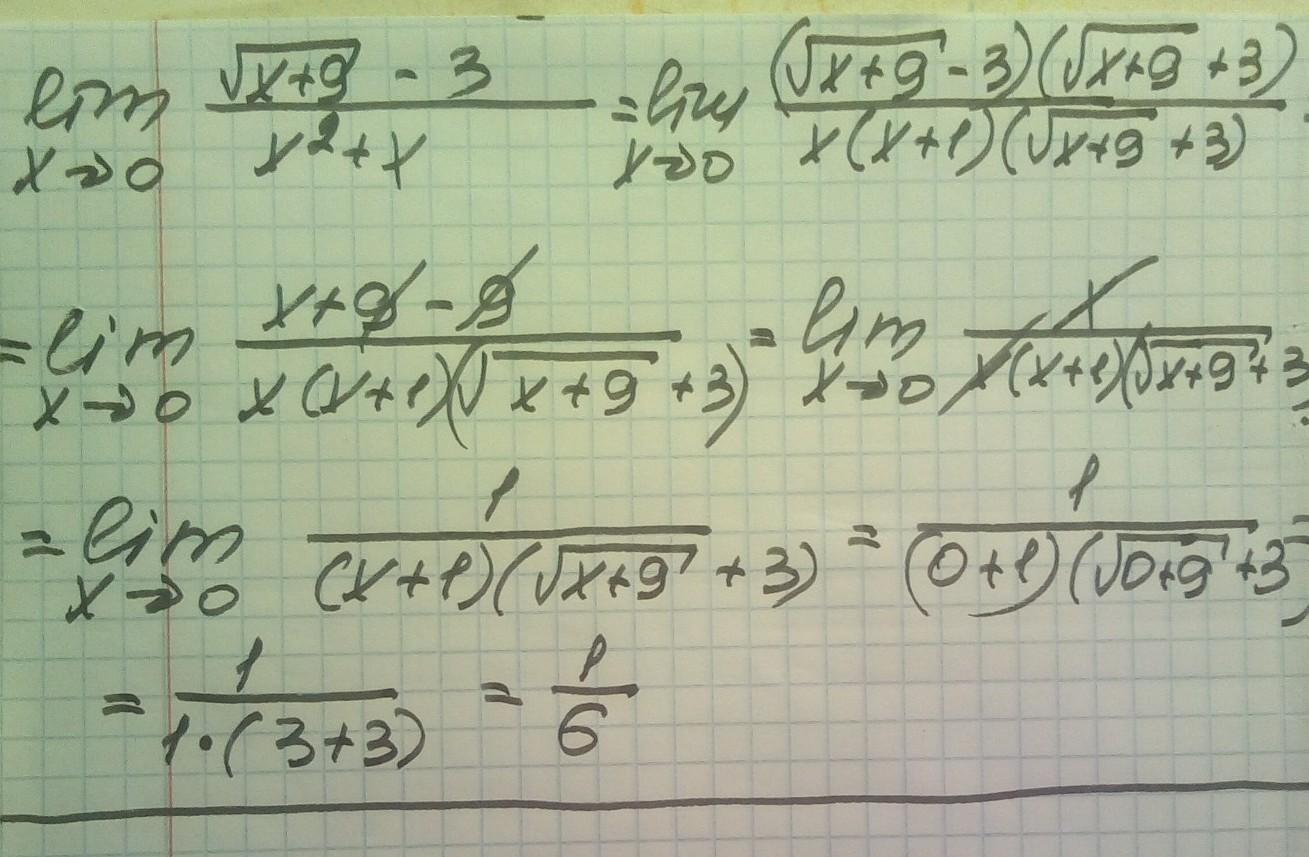 lim x→0 (√(x+9) - 3)/(x² + x) = lim x→0 ((√(x+9) - 3)(√(x+9) + 3))/(x(x+1)(√(x+9) + 3)) =
= lim x→0 (x+9-9)/(x(x+1)(√(x+9) + 3)) = lim x→0 x/(x(x+1)(√(x+9) + 3 =
= lim x→0 1/((x+1)(√(x+9) + 3)) = 1/((0+1)(√(0+9) + 3)) =
= 1/(1·(3+3)) = 1/6